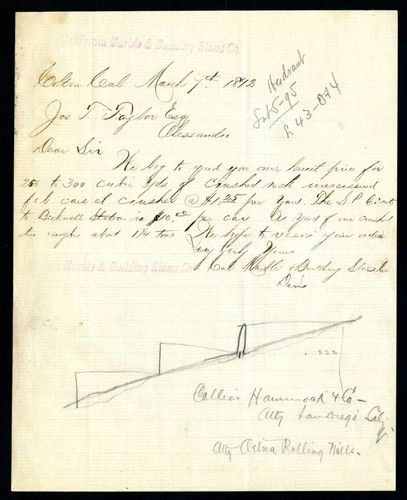 California Marble & Building Stone Co
Colton Cal March 7th 1892
Jos T. Taylor Esq
Alessandro
Dear Sir
We beg to quote you our lowest price for
250 to 300 cubic yds of crushed rock unscreened
f.o.b. cars at crusher @ $1.25 per yard. The S.P. Co rate
to is $10.00 per car yard of our crushed
weighs about 1 1/4 tons We hope to receive your order
Very truly Yours
Cal Marble & Building Stone Co
Davis
Marble & Building Stone Co
L 43-074
.222
Collier Hammack & Co
Atty San Diego Cal
Atty Aetna Rolling Mills.